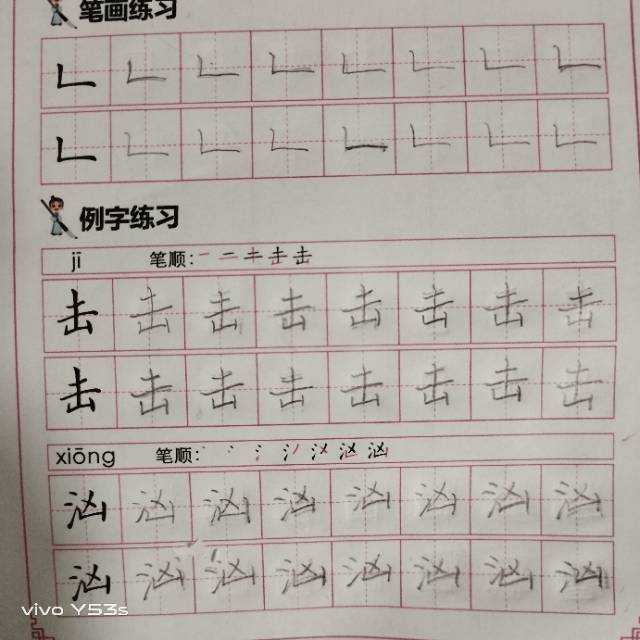 笔画练习
𠃊 𠃊 𠃊 𠃊 𠃊 𠃊 𠃊 𠃊
𠃊 𠃊 𠃊 𠃊 𠃊 𠃊 𠃊 𠃊
例字练习
jī 笔顺:一 二 キ 击 击
击 击 击 击 击 击 击 击
击 击 击 击 击 击 击 击
xiōng 笔顺: 汹
汹 汹 汹 汹 汹 汹 汹 汹
汹 汹 汹 汹 汹 汹 汹 汹
vivo Y53s